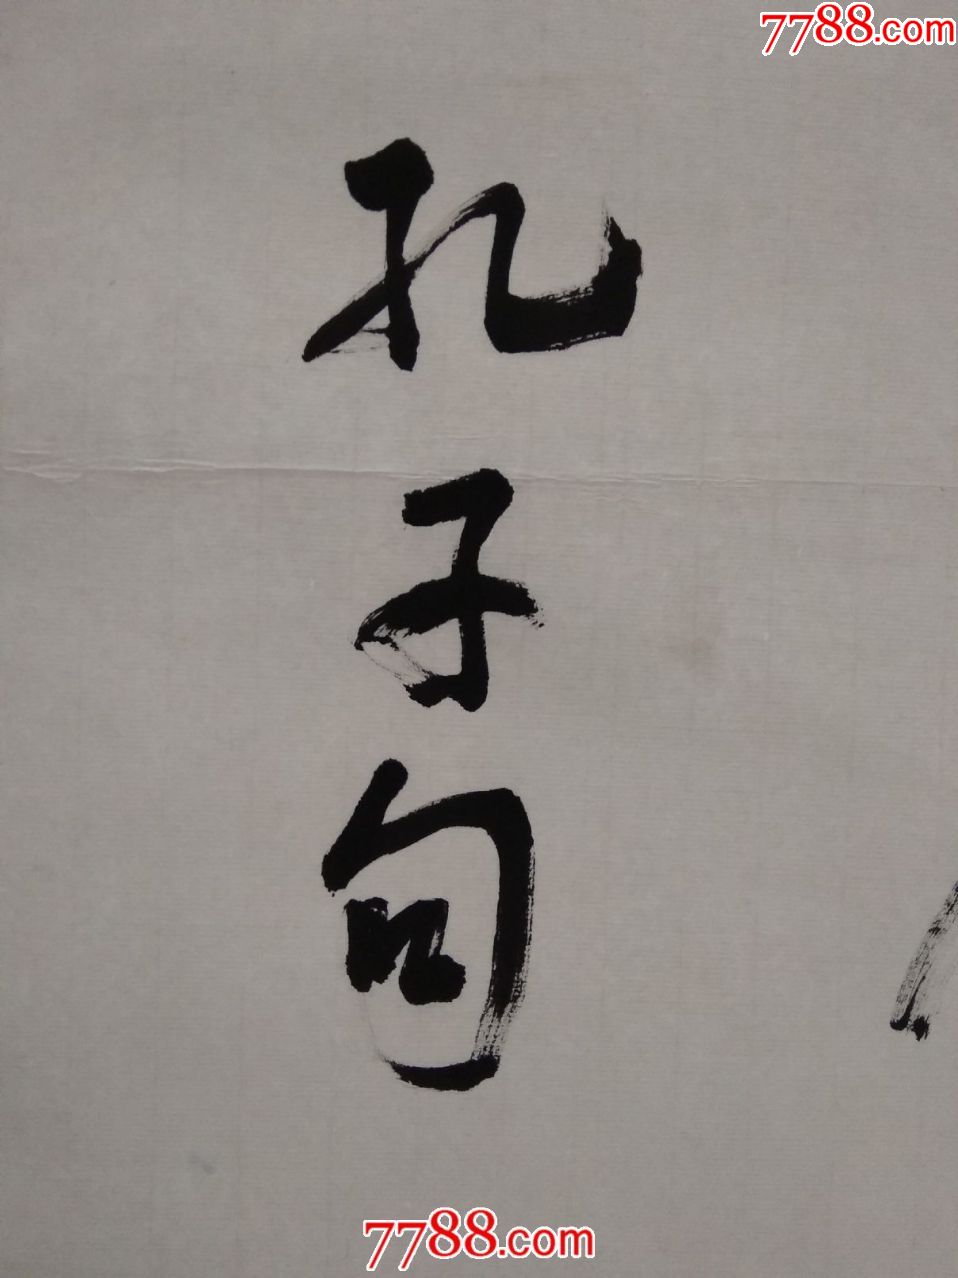 7788.com
孔子句
7788.com